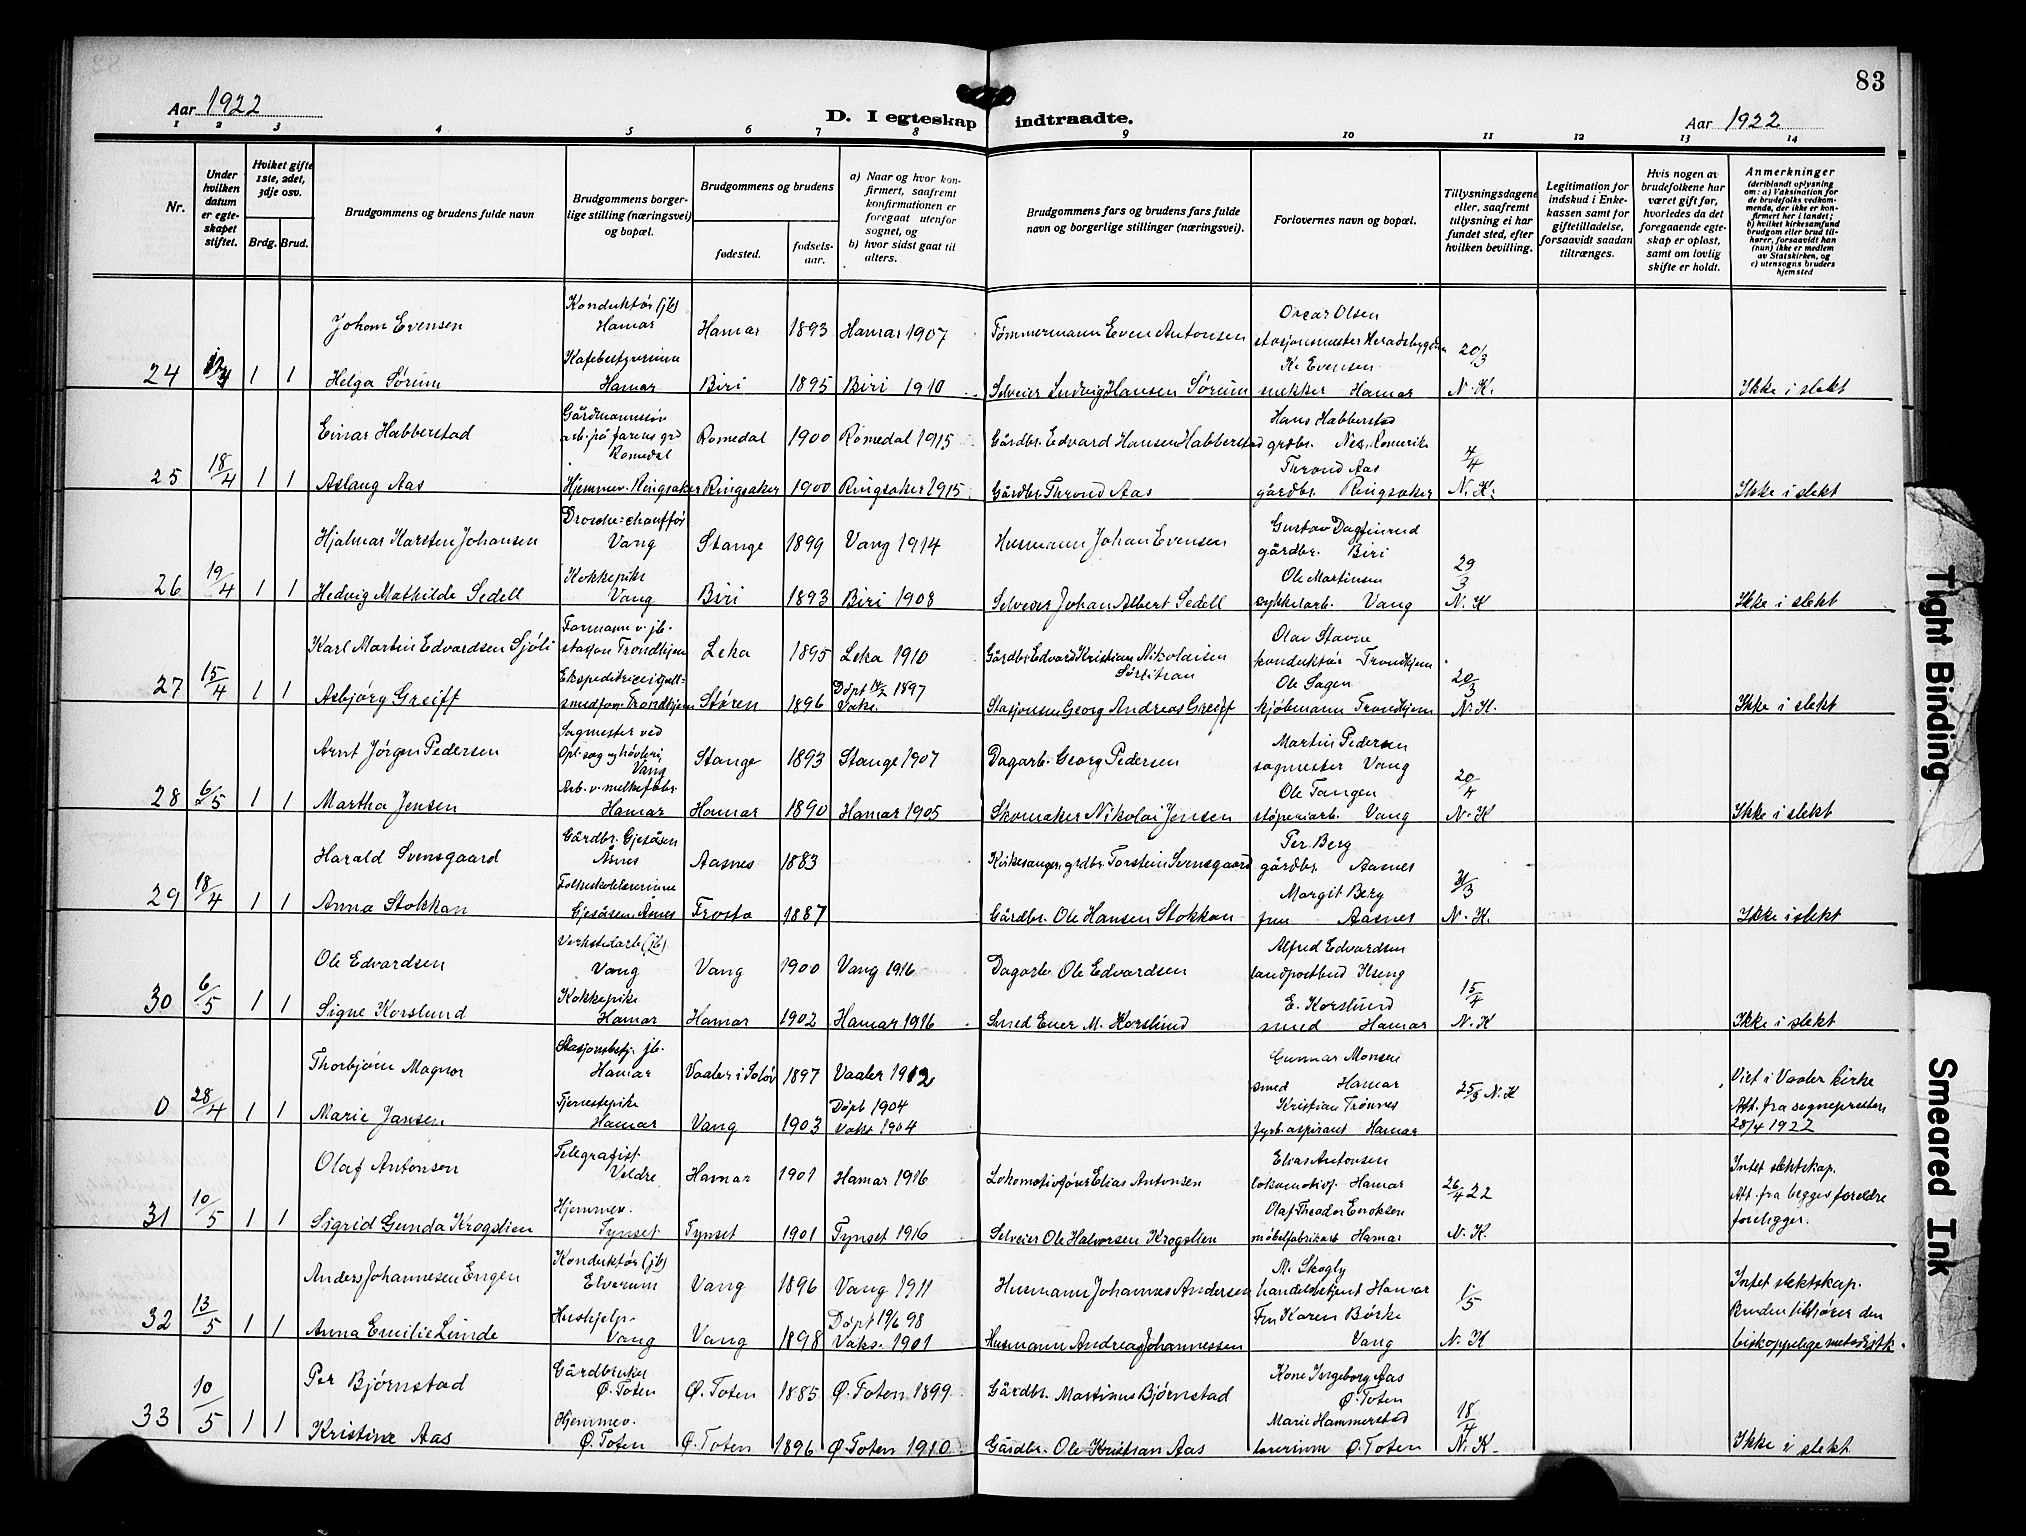 83
Aar 1922
D. I egteskap indtraadte.
Aar 1922
1 2 3 4 5 6 7 8 9 10 11 12 13 14
Nr.
Under hvilken datum er egteskapet stiftet.
Hviket gifte 1ste, 2det, 3dje osv.
Brdg. Brud.
Brudgommens og brudens fulde navn
Brudgommens borgerlige stilling (næringsvei) og bopæl.
Brudgommens og brudens
fødested.
fødselsaar.
a) Naar og hvor konfirmert, saafremt konfirmationen er foregaat utenfor sognet, og
b) hvor sidst gaat til alters.
Brudgommens fars og brudens fars fulde navn og borgerlige stillinger (næringsvei).
Forlovernes navn og bopæl.
Tillysningsdagene eller, saafremt tillysning ei har fundet sted, efter hvilken bevilling.
Legitimation for indskud i Enkekassen samt for giftetilladelse, forsaavidt saadan tiltrænges.
Hvis nogen av brudefolkene har været gift før, hvorledes da det foregaaende egteskap er opløst, samt om lovlig skifte er holdt.
Anmerkninger
(deriblandt oplysning om: a) Vaksination for de brudefolks vedkommende, der ikke er konfirmert her i landet; b) hvilket kirkesamfund brudgom eller brud tilhører, forsaavidt han (hun) ikke er medlem av Statskirken, og c) utensogns bruders hjemsted
Johan Evensen Konduktør (jb) Hamar Hamar 1893 Hamar 1907 Tømmermann Even Antonsen Oscar Olsen stasjonsmester Heradsbygden
24 1 1 Helga Sørum Kafebestyrerinne Hamar Biri 1895 Biri 1910 Selveier Ludvig Hansen Sørum K. Evensen snekker Hamar 20/3 N. K. Ikke i slekt
Einar Habberstad Gårdmannssøn arb. på farens grd Romedal Romedal 1900 Romedal 1915 Gårdbr. Edvard Hansen Habberstad Hans Habberstad grdbr. Nes, Romerike
25 18/4 1 1 Aslaug Aas Hjemmev. Ringsaker Ringsaker 1900 Ringsaker 1915 Gårdbr. Thrond Aas Thrond Aas gårdbr. Ringsaker 4/4 N. K. Ikke i slekt
Hjalmar Karsten Johansen Drosche-chauffør Vang Stange 1899 Vang 1914 Husmann Johan Evensen Gustav Dagfinrud gårdbr. Biri
26 19/4 1 1 Hedvig Mathilde Sedell Kokkepike Vang Biri 1893 Biri 1908 Selveier Johan Albert Sedell Ole Martinsen sykkelarb. Vang 29/3 N. K Ikke i slekt
Karl Martin Edvardsen Sjöli Formann v. jb. stasjon Trondhjem Leka 1895 Leka 1910 Gårdbr. Edvard Kristian Nikolaisen Olav Stavne konduktør Trondhjem
27 15/4 1 1 Asbjørg Greiff Trondhjem Støren 1896 Døpt 1897 Vaks. Stasjonsm Georg Andreas Greiff Ole Sagen kjøbmann Trondhjem 20/3 N. K. Ikke i slekt
Arnt Jørgen Pedersen Sagmester ved Opl. sag og høvleri, Vang Stange 1893 Stange 1907 Dagarb. Georg Pedersen Martin Pedersen sagmester Vang
28 6/5 1 1 Martha Jensen Arb. v. melkefabr. Hamar Hamar 1890 Hamar 1905 Skomaker Nikolai Jensen Ole Tangen støperiarb. Vang 20/4 N. K Ikke i slekt
Harald Svensgaard Gårdbr. Gjesåsen Åsnes Aasnes 1883 Kirkesanger, grdbr. Torstein Svensgaard Per Berg gårdbr. Aasnes
29 18/4 1 1 Anna Stokkan Folkeskolelærerinne Gjesåsen, Åsnes Frosta 1887 Gårdbr. Ole Hansen Stokkan Margit Berg fru Aasnes 31/3 N. K. Ikke i slekt
Ole Edvardsen Verkstedarb (jb) Vang Vang 1900 Vang 1916 Dagarb Ole Edvardsen Alfred Edvardsen landpostbud Ilseng
30 6/5 1 1 Signe Korslund Kokkepike Hamar Hamar 1902 Hamar 1916 Smed Ener M. Korslund E. Korslund smed Hamar 15/4 N. K Ikke i slekt
Thorbjørn Magnor Stasjonsbetj. jb. Hamar Vaaler i Soløv 1897 Vaaler 1912 Gunnar Monsen smed Hamar
0 28/4 1 1 Marie Jansen Tjenestepike Hamar Vang 1903 Døpt 1904 Vaks 1904 Kristian Trønnes fyrb. aspirant Hamar 25/3 N. K Viet i Vaaler kirke Att. fra sognepresten 28/4 1922
Olaf Antonsen Telegrafist Veldre Hamar 1901 Hamar 1916 Lokomotivfører Elias Antonsen Elias Antonsen lokomotivf. Hamar
31 10/5 1 1 Sigrid Gunda Krogslien Hjemmev. Tynset Tynset 1901 Tynset 1916 Selveier Ole Halvorsen Krogslien Olaf Theodor Eriksen møbelfabrikarb Hamar 26/4 22 N. K. Intet slektskap. Att. fra begges foreldre foreligger.
Anders Johannesen Engen Konduktør (jb) Elverum Vang 1896 Vang 1911 Husmann Johannes Andersen M. Skogly handelsbetjent Hamar
32 13/5 1 1 Anna Emilie Lunde Hushjelp. Vang Vang 1898 Døpt 19/6 98 Vaks. 1901 Husmann Andreas Johannessen Fru Karen Börke Vang 1/5 N. K Intet slektskap. Bruden tilhører den biskoppelige metodistk.
Per Bjørnstad Gårdbruker Ø. Toten Ø. Toten 1885 Ø. Toten 1899 Gårdbr. Martinus Bjørnstad Kone Ingeborg Aas Ø. Toten
33 10/5 1 1 Kristine Aas Hjemmev. Ø. Toten Ø. Toten 1896 Ø. Toten 1910 Gårdbr. Ole Kristian Aas Marie Hammerstad lærerinne Ø. Toten 18/4 N. K. Ikke i slekt
Tight Binding
Smeared Ink